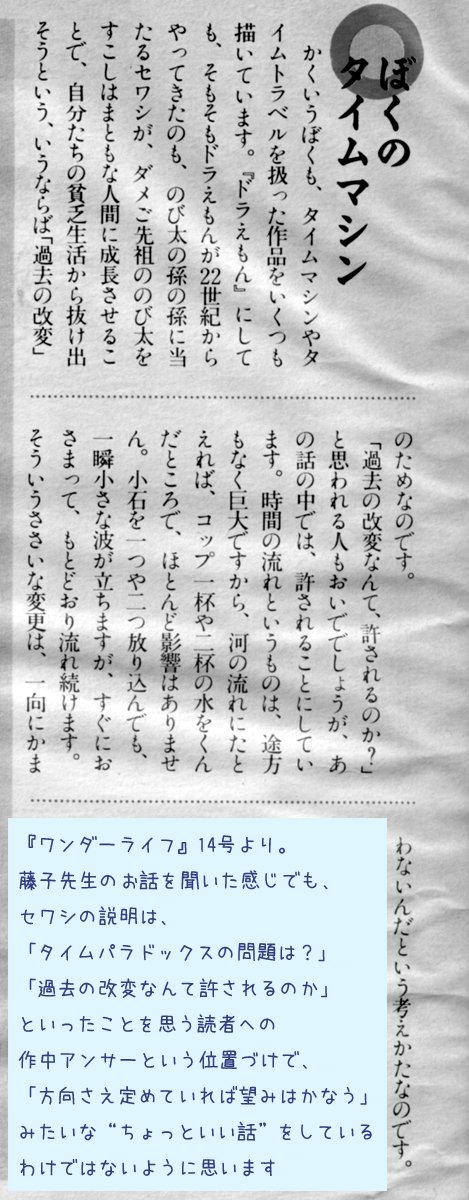 ぼくの
タイムマシン
かくいうぼくも、タイムマシンやタ
イムトラベルを扱った作品をいくつも
描いています。『ドラえもん』にして
も、そもそもドラえもんが22世紀から
やってきたのも、のび太の孫の孫に当
たるセワシが、ダメご先祖ののび太を
すこしはまともな人間に成長させるこ
とで、自分たちの貧乏生活から抜け出
そうという、いうならば「過去の改変」
のためなのです。
「過去の改変なんて、許されるのか?」
と思われる人もおいででしょうが、あ
の話の中では、許されることにしてい
ます。時間の流れというものは、途方
もなく巨大ですから、河の流れにたと
えれば、コップ一杯や二杯の水をくん
だところで、ほとんど影響はありませ
ん。小石を一つや二つ放り込んでも、
一瞬小さな波が立ちますが、すぐにお
さまって、もとどおり流れ続けます。
そういうささいな変更は、一向にかま
わないんだという考えかたなのです。
『ワンダーライフ』14号より。
藤子先生のお話を聞いた感じでも、
セワシの説明は、
「タイムパラドックスの問題は?」
「過去の改変なんて許されるのか」
といったことを思う読者への
作中アンサーという位置づけで、
「方向さえ定めていれば望みはかなう」
みたいな“ちょっといい話”をしている
わけではないように思います